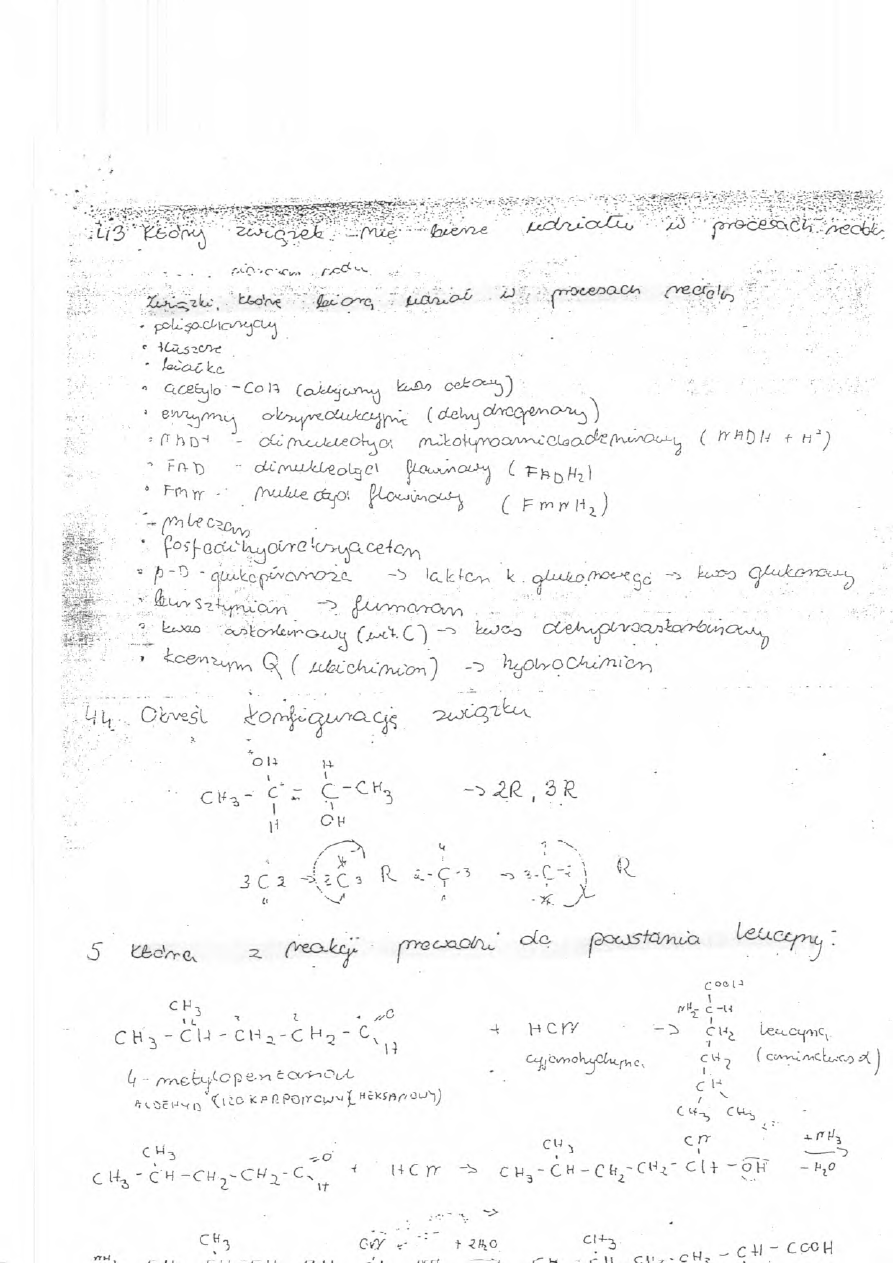 43 Który związek nie bierze udziału w procesach redoks
Związki, które biorą udział w procesach redoks
· polisacharydy
· tłuszcze
· białka
· acetylo-CoA (aktywny kwas octowy)
· enzymy oksyredukcyjne (dehydrogenazy)
· NAD+ - dinukleotyd nikotynoamidoadeninowy (NADH + H+)
· FAD - dinukleotyd flawinowy (FADH2)
· FMN - nukleotyd flawinowy (FMNH2)
- mleczan
· fosfodihydroksyaceton
· β-D-glukopiranoza -> lakton k. glukonowego -> kwas glukonowy
· bursztynian -> fumaran
· kwas askorbinowy (wit. C) -> kwas dehydroaskorbinowy
· koenzym Q (ubichinion) -> hydrochinion
44. Określ konfigurację związku
OH H
CH3 - C - C - CH3 -> 2R, 3R
H OH
3 C 2 -> 2 C 3 R 2-C-3 -> 3-C-2 R
5 Która z reakcji prowadzi do powstania leucyny:
COOH
CH3 NH2 - C - H
CH3 - CH - CH2 - CH2 - C =O H + HCN -> CH2 leucyna
cyjanohydryna CH2 (aminokwas)
4-metylopentanowy CH
ALDEHYD (IZOKAPRONOWY) [HEKSANOWY] CH3 CH3
CH3 CH3 CN +NH3
CH3 - CH - CH2 - CH2 - C =O H + HCN -> CH3 - CH - CH2 - CH2 - CH - OH -H2O
CH3 CN + 2H2O CH3
CH2 - CH - COOH